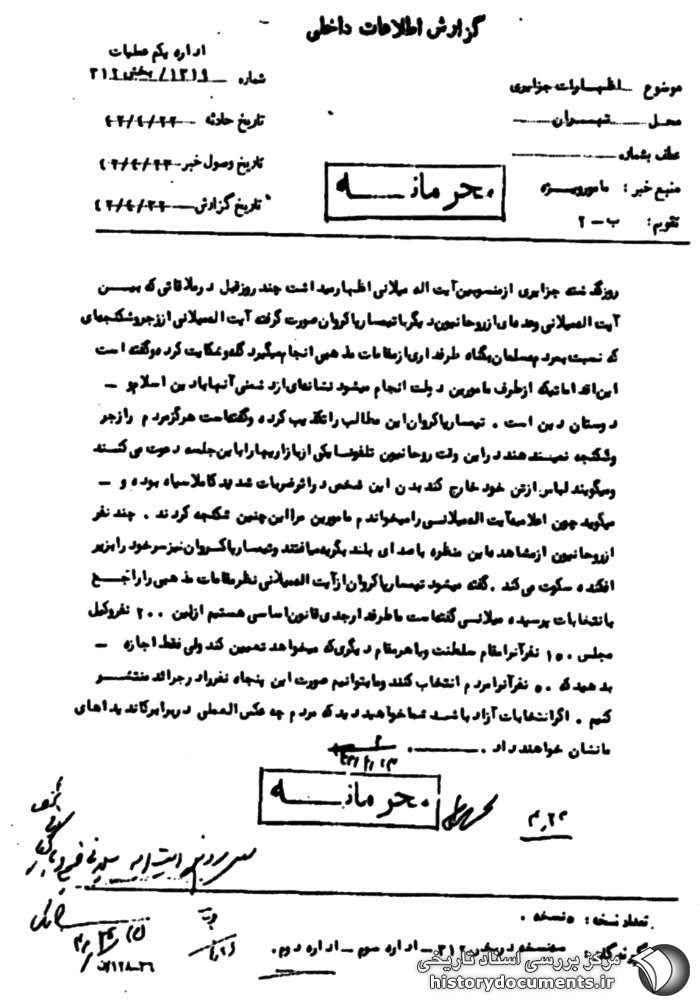 گزارش اطلاعات داخلی
اداره یکم عملیات
شماره ۱۲۱۹/بخش ۳۱۲
موضوع اظهارات جزایری
محل تهران
تاریخ حادثه ۴۲/۴/۲۲
عطف بشماره
تاریخ وصول خبر ۴۲/۴/۲۳
منبع خبر : مامور ویژه
تاریخ گزارش ۴۲/۴/۲۳
تقویم : ب - ۲
محرمانه
روزگذشته جزایری ازمنسوبین آیت اله میلانی اظهارمیداشت چند روزقبل درملاقاتی که بین
آیت اله میلانی وعده‌ای ازروحانیون دیگر با تیمسارپاکروان صورت گرفته آیت اله میلانی اززجر وشکنجه‌ای
که نسبت بمردم مسلمان بیگناه طرفداری ازمقامات مذهبی انجام میگیرد گله وشکایت کرده وگفته است
این اقداماتیکه ازطرف مامورین دولت انجام میشود نشانه‌ای ازدشمنی آنها با دین اسلام و -
دوستان دین است . تیمسارپاکروان این مطالب را تکذیب کرده وگفته است هرگز مردم را زجر
وشکنجه نمیدهند دراین وقت روحانیون تلفونا یکی از بازاریها را باین جلسه دعوت می‌کنند
ومیگویند لباس ازتن خود خارج کند بدن این شخص دراثر ضربات شدید کاملا سیاه بوده و -
میگوید چون اعلامیه آیت اله میلانی را میخواندم مامورین مرا این چنین شکنجه کردند . چند نفر
ازروحانیون ازمشاهده این منظره با صدای بلند بگریه میافتند وتیمسارپاکروان نیز سرخود را بزیر
افکنده سکوت می‌کند . گفته میشود تیمسارپاکروان از آیت اله میلانی نظر مقامات مذهبی را راجع
بانتخابات پرسیده میلانی گفته است ما طرفدارجدی قانون اساسی هستیم ازاین ۲۰۰ نفر وکیل
مجلس ۱۵۰ نفر آنرا مقام سلطنت ویا هرمقام دیگری که میخواهد تعیین کند ولی فقط اجازه -
بدهید که ۵۰ نفر آنرا مردم انتخاب کنند وما بتوانیم صورت این پنجاه نفررا درجرائد منتشر
کنیم . اگرانتخابات آزاد باشد شما خواهید دید که مردم چه عکس العملی دربرابر کاندیداهای
مانشان خواهند داد .
محرمانه
۴/۲۳
تعداد نسخه : ۵ نسخه .
گیرندگان : نسخه دربخش ۳۱۲ - اداره سوم - اداره دوم .
مرکز بررسی اسناد تاریخی
historydocuments.ir